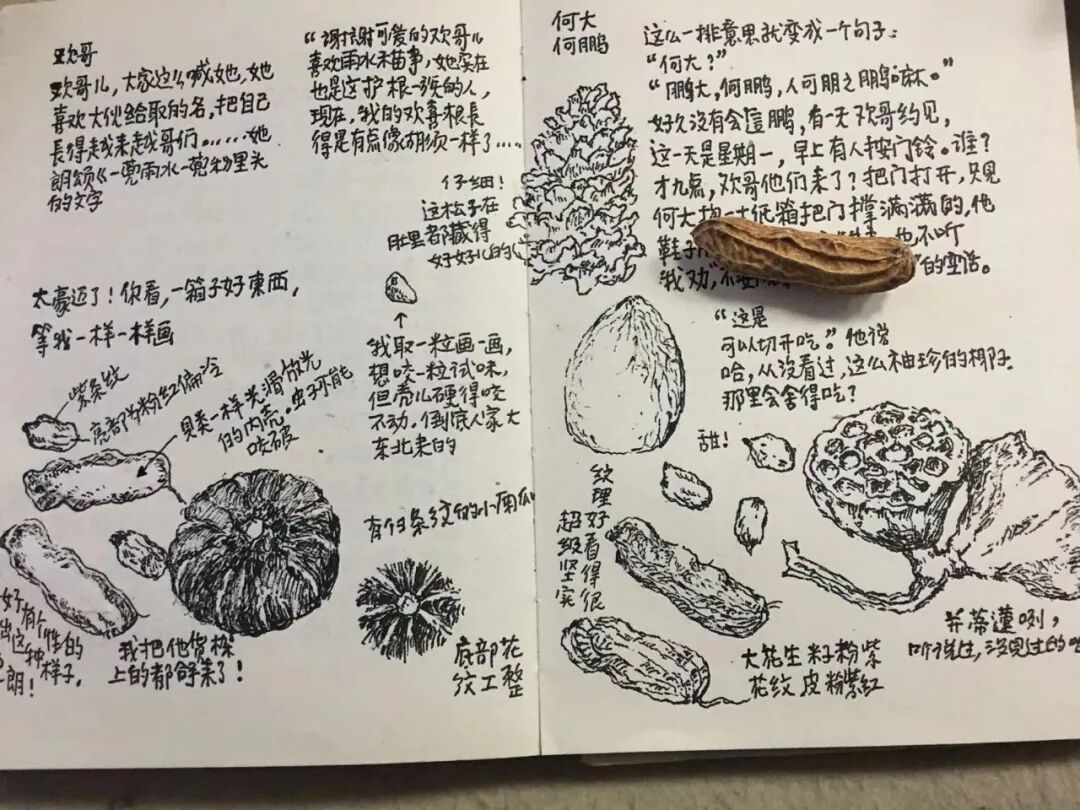 欢哥
欢哥儿，大家这么喊她，她
喜欢大伙给取的名，把自己
長得越来越哥们。……她
朗颂《一兜雨水一兜秒里头
的文字
“谢谢可爱的欢哥儿
喜欢雨水和苗事，她实在
也是这护根一族的人，
现在，我的欢喜根長
得是有点像胡须一样了….
仔细！
这松子在
肚里都藏得
好好儿的
太豪迈了！你看，一箱子好東西，
等我一样一样画
我取一粒画一画，
想咬一粒试味，
但壳儿硬得咬
不动。倒底人家大
东北来的
紫条纹
亮部为粉红偏冷
貝类一样光滑放光
的内壳。虫子不能
咬破
有白条纹的小南瓜
好有个性的
出这种样子，
朗！
我把他货梯
上的都
来了！
底部花
纹工整
何大
何鹏
这么一排意思就变成一个句子：
“何大？”
“鹏大，何鹏，人可朋之鹏嘛。”
好久没有会這鹏，有一天欢哥约见，
这一天是星期一，早上有人按门铃。谁？
才九点，欢哥他们来了？把门打开，只见
何大抱一大纸箱把门撑满满的，他
鞋子
也不听
我劝“不要
”的
话。
“这是
可以切开吃。”他说
哈，从没看过，这么袖珍的椰子
那里会舍得吃？
甜！
纹理好看得很
超级坚实
大花生 籽粉紫
花纹 皮粉紫红
并蒂蓮咧，
听说过，没见过的